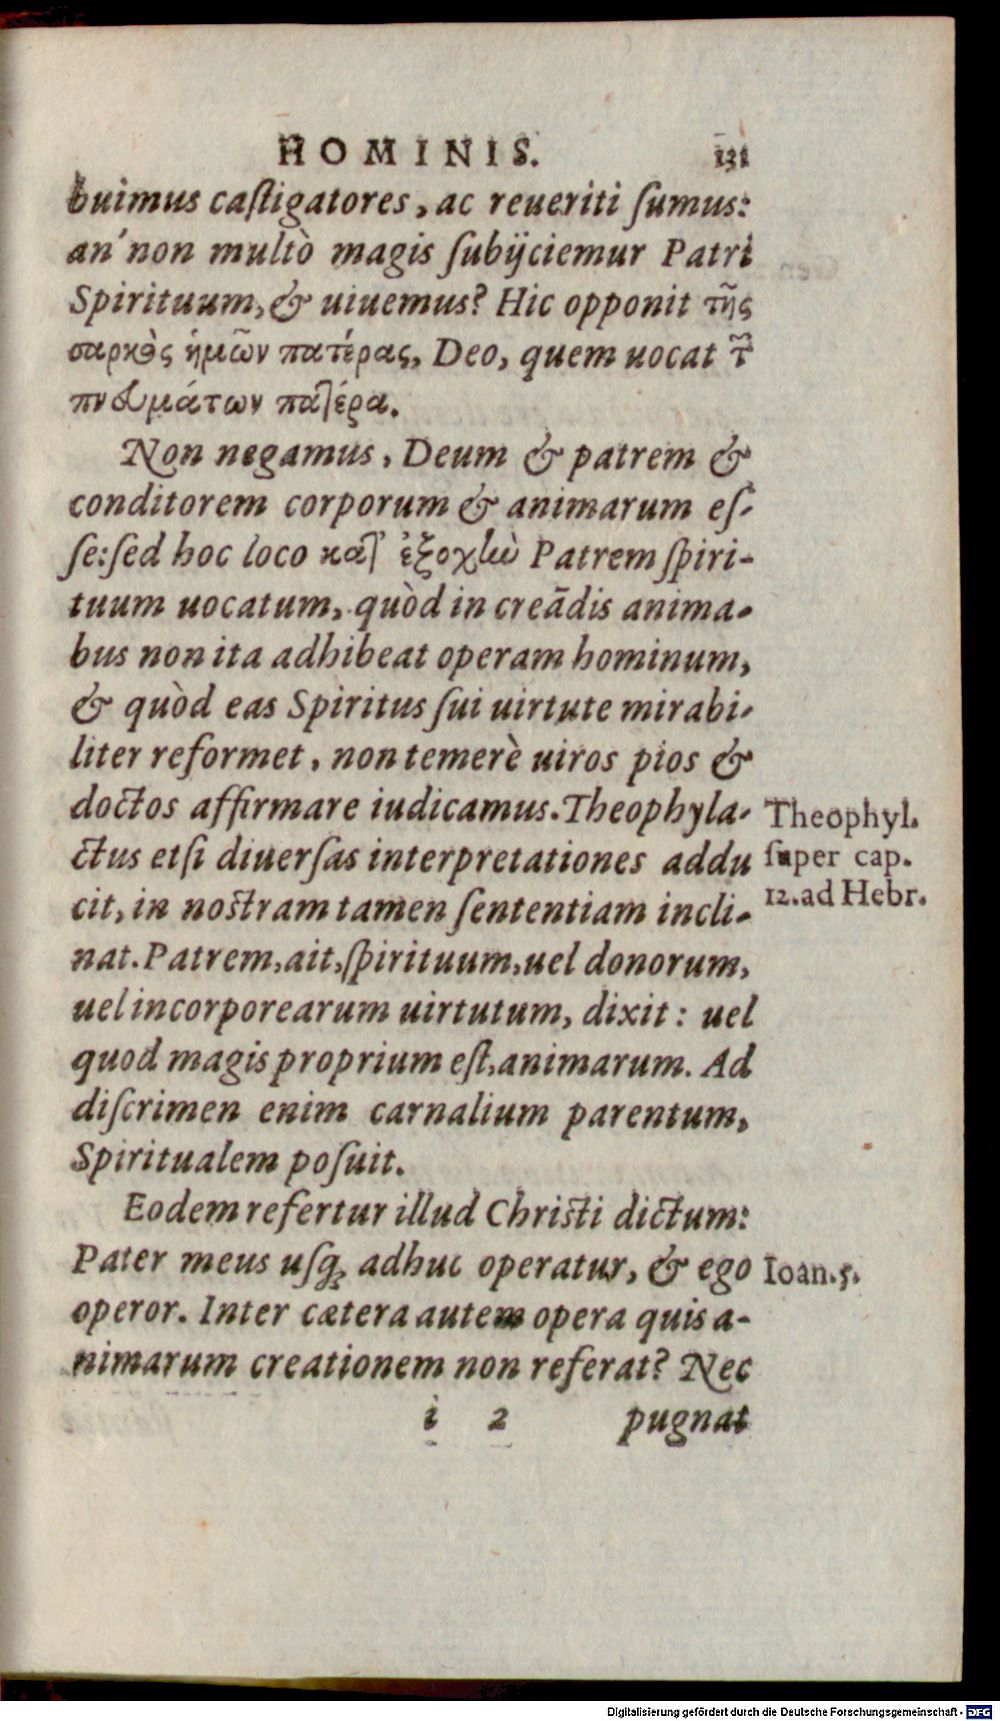 HOMINIS. 131
buimus caſtigatores, ac reueriti ſumus:
an' non multò magis ſubijciemur Patri
Spirituum, & uiuemus? Hic opponit τῆς
σαρκὸς ἡμῶν πατέρας, Deo, quem uocat τ̃
πνευμάτων πατέρα.
Non negamus, Deum & patrem &
conditorem corporum & animarum eſ-
ſe: ſed hoc loco κατ' ἐξοχὴν Patrem ſpiri-
tuum uocatum, quòd in creãdis anima-
bus non ita adhibeat operam hominum,
& quòd eas Spiritus ſui uirtute mirabi-
liter reformet, non temerè uiros pios &
doctos affirmare iudicamus. Theophyla-
ctus etſi diuerſas interpretationes addu
cit, in noſtram tamen ſententiam incli-
nat. Patrem, ait, ſpirituum, uel donorum,
uel incorporearum uirtutum, dixit: uel
quod magis proprium eſt, animarum. Ad
diſcrimen enim carnalium parentum,
Spiritualem poſuit.
Theophyl.
ſuper cap.
12. ad Hebr.
Eodem refertur illud Chriſti dictum:
Pater meus uſq; adhuc operatur, & ego
operor. Inter cætera autem opera quis a-
nimarum creationem non referat? Nec
Ioan. 5.
i 2 pugnat
Digitalisierung gefördert durch die Deutsche Forschungsgemeinschaft - DFG